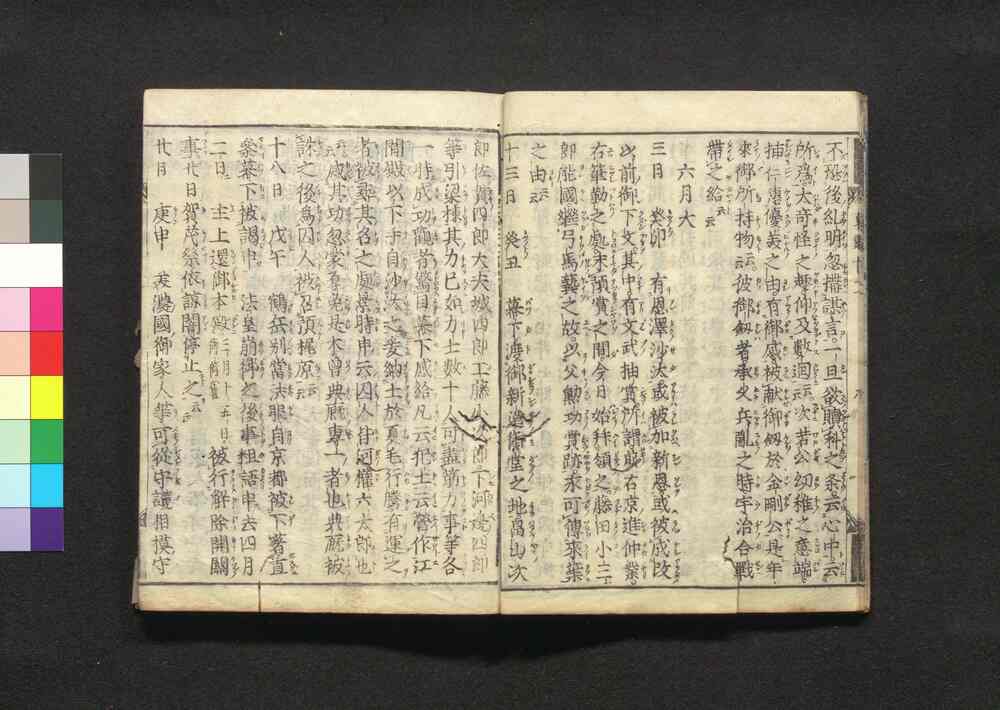 不復後糺明忽構謀言一旦欲贖科之条云心中云
所為太奇怪之趣仰又數廻云次若公幼稚之意端
挿仁惠優美之由有御感被献御劔於金剛公是年
來御所持物云彼御劔者承久兵亂之時宇治合戰
帶之給云
六月大
三日 癸卯 有恩澤沙汰或被加新恩或被成改
以前御下文其中有文武抽賞所謂欧右京進仲業
右筆勤之處未預賞之間今日始拜領之藤田小三
郎能國繼弓馬藝之故以父勳功賞跡永可傳來葉
之由云
十三日 癸丑 幕下渡御新造御堂之地畠山次
郎佐貫四郎大夫城四郎工藤小次郎下河邊四郎
等引梁棟其力已如力士數十人可盡筋力事等各
一時成功觀者驚目幕下感給凡云犯土云營作江
間殿以下手自沙汰之安納土於夏毛行騰有運之
者被尋其名之處景時申云囚人皆河權六太郎也
云感其功忽蒙厚免是木曾典厩專一者也典厩被
誅之後為囚人被召預梶原云
十八日 戊午 鶴岳別當法眼自京都被下著直
參幕下被謁申 法皇崩御之後事粗語申去四月
二日 主上還御本殿 三月十五日 被行解除開關
事廿日賀茂祭依諒闇停止之云云
廿日 庚申 美濃國御家人等可從守護相模守